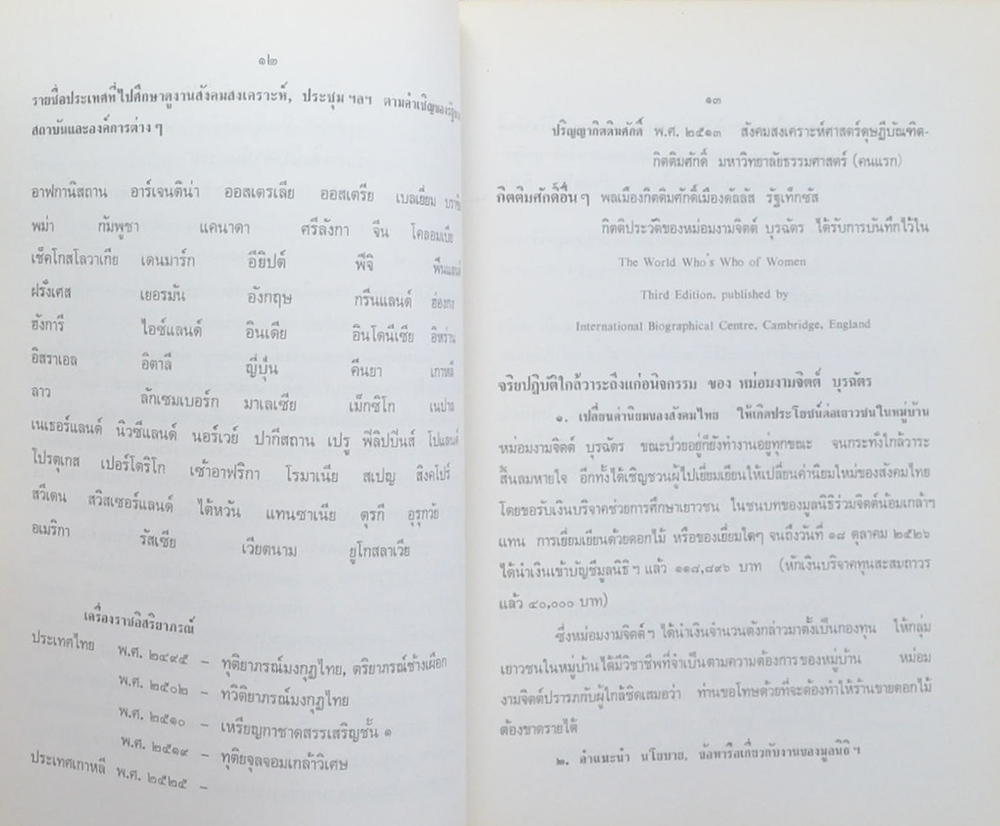 ๑๒
รายชื่อประเทศที่ไปศึกษาดูงานสังคมสงเคราะห์, ประชุม ฯลฯ ตามคำเชิญของรัฐบาล
สถาบันและองค์การต่าง ๆ
อาฟกานิสถาน อาร์เจนติน่า ออสเตรเลีย ออสเตรีย เบลเยี่ยม
พม่า กัมพูชา แคนาดา ศรีลังกา จีน โคลอมเบีย
เช็คโกสโลวาเกีย เดนมาร์ก อียิปต์ ฟีจิ ฟินแลนด์
ฝรั่งเศส เยอรมัน อังกฤษ กรีนแลนด์ ฮ่องกง
ฮังการี ไอซ์แลนด์ อินเดีย อินโดนีเซีย อิหร่าน
อิสราเอล อิตาลี ญี่ปุ่น คีนยา เกาหลี
ลาว ลักเซมเบอร์ก มาเลเซีย เม็กซิโก เนปาล
เนเธอร์แลนด์ นิวซีแลนด์ นอร์เวย์ ปากีสถาน เปรู ฟิลิปปินส์ โปแลนด์
โปรตุเกส เปอร์โตริโก เซ้าอาฟริกา โรมาเนีย สเปญ สิงคโปร์
สวีเดน สวิสเซอร์แลนด์ ไต้หวัน แทนซาเนีย ตุรกี อุรุกวัย
อเมริกา รัสเซีย เวียตนาม ยูโกสลาเวีย
เครื่องราชอิสริยาภรณ์
ประเทศไทย พ.ศ. ๒๔๙๕ – ทุติยาภรณ์มงกุฎไทย, ตริยาภรณ์ช้างเผือก
พ.ศ. ๒๕๐๒ – ทวีติยาภรณ์มงกุฎไทย
พ.ศ. ๒๕๑๐ – เหรียญกาชาดสรรเสริญชั้น ๑
พ.ศ. ๒๕๑๙ – ทุติยจุลจอมเกล้าวิเศษ
ประเทศเกาหลี พ.ศ. ๒๕๒๕ –
๑๓
ปริญญากิตติมศักดิ์ พ.ศ. ๒๕๑๓ สังคมสงเคราะห์ศาสตร์ดุษฎีบัณฑิต-
กิตติมศักดิ์ มหาวิทยาลัยธรรมศาสตร์ (คนแรก)
กิตติมศักดิ์อื่น ๆ พลเมืองกิตติมศักดิ์เมืองดัลลัส รัฐเท็กซัส
กิตติประวัติของหม่อมงามจิตต์ บุรฉัตร ได้รับการบันทึกไว้ใน
The World Who's Who of Women
Third Edition, published by
International Biographical Centre, Cambridge, England
จริยปฏิบัติใกล้วาระถึงแก่อนิจกรรม ของ หม่อมงามจิตต์ บุรฉัตร
๑. เปลี่ยนค่านิยมของสังคมไทย ให้เกิดประโยชน์ต่อเยาวชนในหมู่บ้าน
หม่อมงามจิตต์ บุรฉัตร ขณะป่วยอยู่ก็ยังทำงานอยู่ทุกขณะ จนกระทั่งใกล้วาระ
สิ้นลมหายใจ อีกทั้งได้เชิญชวนผู้ไปเยี่ยมเยียนให้เปลี่ยนค่านิยมใหม่ของสังคมไทย
โดยขอรับเงินบริจาคช่วยการศึกษาเยาวชน ในชนบทของมูลนิธิร่วมจิตต์น้อมเกล้าฯ
แทน การเยี่ยมเยียนด้วยดอกไม้ หรือของเยี่ยมใดๆ จนถึงวันที่ ๑๘ ตุลาคม ๒๕๒๖
ได้นำเงินเข้าบัญชีมูลนิธิ ฯ แล้ว ๑๑๘,๘๙๖ บาท (หักเงินบริจาคทุนสะสมถาวร
แล้ว ๔๐,๐๐๐ บาท)
ซึ่งหม่อมงามจิตต์ ฯ ได้นำเงินจำนวนดังกล่าวมาตั้งเป็นกองทุน ให้กลุ่ม
เยาวชนในหมู่บ้านได้มีวิชาชีพที่จำเป็นตามความต้องการของหมู่บ้าน หม่อม
งามจิตต์ปรารภกับผู้ใกล้ชิดเสมอว่า ท่านขอโทษด้วยที่จะต้องทำให้ร้านขายดอกไม้
ต้องขาดรายได้
๒. คำแนะนำ นโยบาย, ข้อหารือเกี่ยวกับงานของมูลนิธิ ฯ